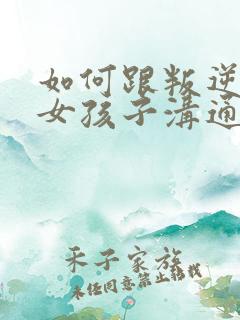 如何跟叛逆
女孩子溝通
禾子家族
未經同意禁止轉載